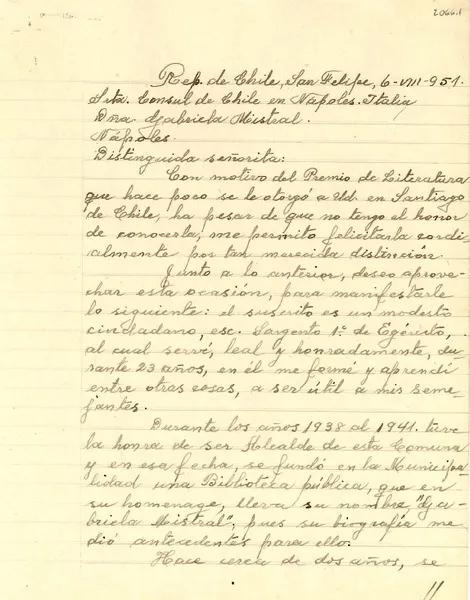 2066.1
Rep. de Chile, San Felipe, 6-VIII-951.
Srta. Consul de Chile en Nápoles. Italia
Dña Gabriela Mistral.
Nápoles.
Distinguida señorita:
Con motivo del Premio de Literatura
que hace poco se le otorgó a Ud. en Santiago
de Chile, ha pesar de que no tengo el honor
de conocerla, me permito felicitarla cordi-
almente por tan merecida distinción.
Junto a lo anterior, deseo aprove-
char esta ocasión, para manifestarle
lo siguiente: el suscrito es un modesto
ciudadano, esc. Sargento 1º de Egército,
al cual serví, leal y honradamente, du-
rante 23 años, en él me formé y aprendí
entre otras cosas, a ser útil a mis seme-
jantes.
Durante los años 1938 al 1941. tuve
la honra de ser Alcalde de esta Comuna
y en esa fecha, se fundó en la Municipa-
lidad una Biblioteca pública, que en
su homenage, lleva su nombre, "Ga-
briela Mistral", pues su biografía me
dió antecedentes para ello.
Hace cerca de dos años, se
//